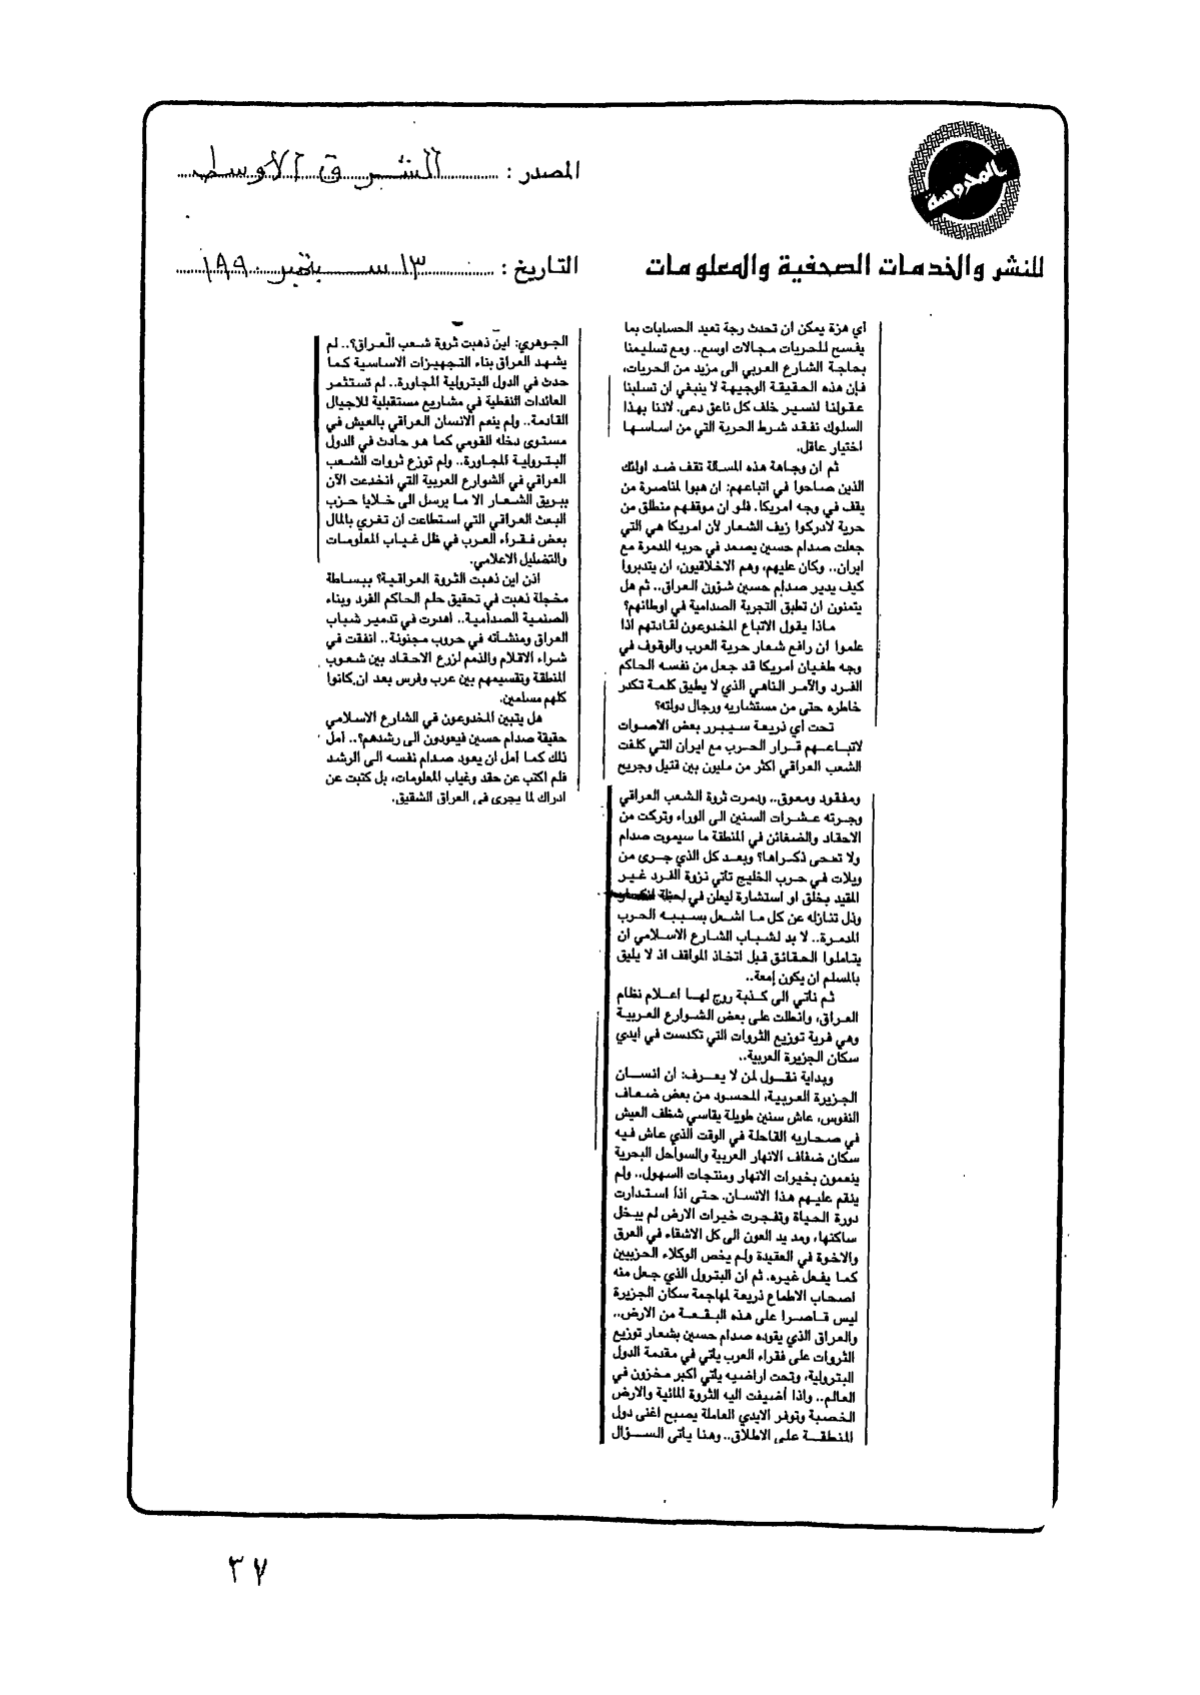 المحروسة
المصدر : الشرق الأوسط
للنشر والخدمات الصحفية والمعلومات
التاريخ : ١٣ سبتمبر ١٩٩٠
أي هزة يمكن ان تحدث رجة تعيد الحسابات بما
يفسح للحريات مجالات اوسع.. ومع تسليمنا
بحاجة الشارع العربي الى مزيد من الحريات،
فإن هذه الحقيقة الوجيهة لا ينبغي ان تسلبنا
عقولنا لنسير خلف كل ناعق دعى. لاننا بهذا
السلوك نفقد شرط الحرية التي من اساسها
اختيار عاقل.
ثم ان وجاهة هذه المسألة تقف ضد اولئك
الذين صاحوا في اتباعهم: ان هبوا لمناصرة من
يقف في وجه امريكا. فلو ان موقفهم منطلق من
حرية لادركوا زيف الشعار لأن امريكا هي التي
جعلت صدام حسين يصمد في حربه المدمرة مع
ايران.. وكان عليهم، وهم الاخلاقيون، ان يتدبروا
كيف يدير صدام حسين شؤون العراق.. ثم هل
يتمنون ان تطبق التجربة الصدامية في اوطانهم؟
ماذا يقول الاتباع المخدوعون لقادتهم اذا
علموا ان رافع شعار حرية العرب والوقوف في
وجه طغيان امريكا قد جعل من نفسه الحاكم
الفرد والآمر الناهي الذي لا يطيق كلمة تكدر
خاطره حتى من مستشاريه ورجال دولته؟
تحت أي ذريعة سيبرر بعض الاصوات
لاتباعهم قرار الحرب مع ايران التي كلفت
الشعب العراقي اكثر من مليون بين قتيل وجريح
ومفقود ومعوق.. ودمرت ثروة الشعب العراقي
وجرته عشرات السنين الى الوراء وتركت من
الاحقاد والضغائن في المنطقة ما سيموت صدام
ولا تمحى ذكراها؟ وبعد كل الذي جرى من
ويلات في حرب الخليج تأتي نزوة الفرد غير
المقيد بخلق او استشارة ليعلن في لحظة
وذل تنازله عن كل ما اشعل بسببه الحرب
المدمرة.. لا بد لشباب الشارع الاسلامي ان
يتاملوا الحقائق قبل اتخاذ المواقف اذ لا يليق
بالمسلم ان يكون إمعة..
ثم نأتي الى كذبة روج لها اعلام نظام
العراق، وانطلت على بعض الشوارع العربية
وهي فرية توزيع الثروات التي تكدست في ايدي
سكان الجزيرة العربية..
وبداية نقول لمن لا يعرف: ان انسان
الجزيرة العربية، المحسود من بعض ضعاف
النفوس، عاش سنين طويلة يقاسي شظف العيش
في صحاريه القاحلة في الوقت الذي عاش فيه
سكان ضفاف الانهار العربية والسواحل البحرية
ينعمون بخيرات الانهار ومنتجات السهول.. ولم
ينقم عليهم هذا الانسان. حتى اذا استدارت
دورة الحياة وتفجرت خيرات الارض لم يبخل
ساكنها، ومد يد العون الى كل الاشقاء في العرق
والاخوة في العقيدة ولم يخص الوكلاء الحزبيين
كما يفعل غيره. ثم ان البترول الذي جعل منه
اصحاب الاطماع ذريعة لمهاجمة سكان الجزيرة
ليس قاصرا على هذه البقعة من الارض..
والعراق الذي يقوده صدام حسين بشعار توزيع
الثروات على فقراء العرب يأتي في مقدمة الدول
البترولية، وتحت اراضيه يأتي اكبر مخزون في
العالم.. واذا أضيفت اليه الثروة المائية والارض
الخصبة وتوفر الايدي العاملة يصبح اغنى دول
المنطقة على الاطلاق.. وهنا يأتي السؤال
الجوهري: اين ذهبت ثروة شعب العراق؟.. لم
يشهد العراق بناء التجهيزات الاساسية كما
حدث في الدول البترولية المجاورة.. لم تستثمر
العائدات النفطية في مشاريع مستقبلية للاجيال
القادمة.. ولم ينعم الانسان العراقي بالعيش في
مستوى دخله القومي كما هو حادث في الدول
البترولية المجاورة.. ولم توزع ثروات الشعب
العراقي في الشوارع العربية التي انخدعت الآن
ببريق الشعار الا ما يرسل الى خلايا حزب
البعث العراقي التي استطاعت ان تغري بالمال
بعض فقراء العرب في ظل غياب المعلومات
والتضليل الاعلامي.
اذن اين ذهبت الثروة العراقية؟ ببساطة
مخجلة ذهبت في تحقيق حلم الحاكم الفرد وبناء
الصنمية الصدامية.. اهدرت في تدمير شباب
العراق ومنشأته في حروب مجنونة.. انفقت في
شراء الاقلام والذمم لزرع الاحقاد بين شعوب
المنطقة وتقسيمهم بين عرب وفرس بعد ان كانوا
كلهم مسلمين.
هل يتبين المخدوعون في الشارع الاسلامي
حقيقة صدام حسين فيعودون الى رشدهم؟.. آمل
ذلك كما آمل ان يعود صدام نفسه الى الرشد
فلم اكتب عن حقد وغياب المعلومات، بل كتبت عن
ادراك لما يجري في العراق الشقيق.
٣٧